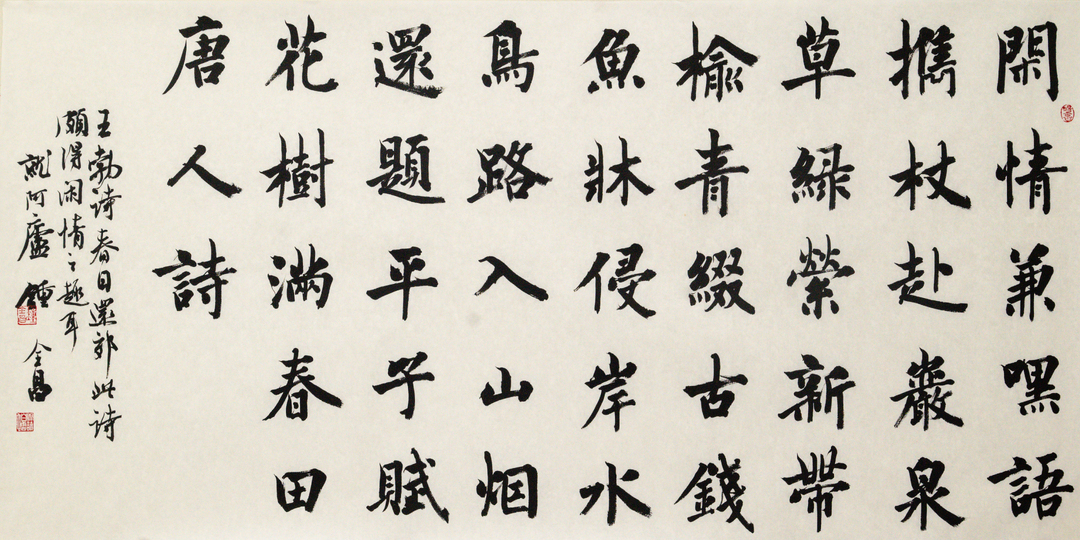 閑情兼嘿語
攜杖赴巖泉
草綠縈新帶
榆青綴古錢
魚牀侵岸水
鳥路入山烟
還題平子賦
花樹滿春田
唐人詩
王勃诗春日還郊此诗
頗得闲情之趣耳
阿廬鍾全昌